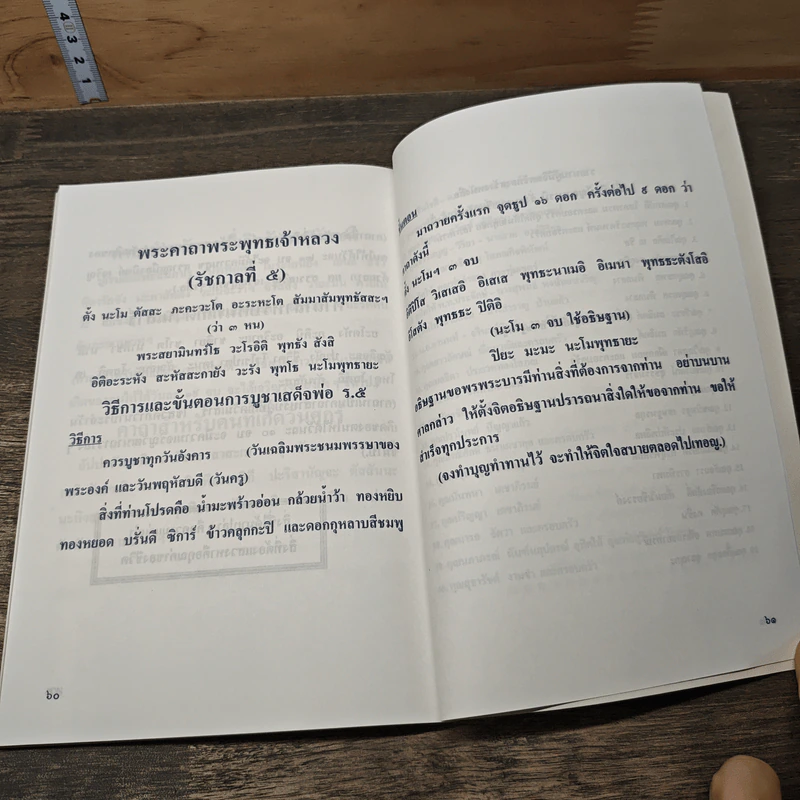 4
3
2
1
พระคาถาพระพุทธเจ้าหลวง
(รัชกาลที่ ๕)
ตั้ง นะโม ตัสสะ ภะคะวะโต อะระหะโต สัมมาสัมพุทธัสสะฯ
(ว่า ๓ หน)
พระสยามินทร์โธ วะโรอิติ พุทธัง สังสิ
อิติอะระหัง สะหัสสะกายัง วะรัง พุทโธ นะโมพุทธายะ
วิธีการและขั้นตอนการบูชาเสด็จพ่อ ร.๕
วิธีการ
ควรบูชาทุกวันอังคาร (วันเฉลิมพระชนมพรรษาของ
พระองค์ และวันพฤหัสบดี (วันครู)
สิ่งที่ท่านโปรดคือ น้ำมะพร้าวอ่อน กล้วยน้ำว้า ทองหยิบ
ทองหยอด บรั่นดี ซิการ์ ข้าวคลุกกะปิ และดอกกุหลาบสีชมพู
๖๐
มาถวายครั้งแรก จุดธูป ๑๖ ดอก ครั้งต่อไป ๙ ดอก ว่า
ดังนี้
นะโมฯ ๓ จบ
วิเสเสอิ อิเสเส พุทธะนาเมอิ อิเมนา พุทธะตังโสอิ
พุทธะ ปิติอิ
(นะโม ๓ จบ ใช้อธิษฐาน)
ปิยะ มะมะ นะโมพุทธายะ
อธิษฐานขอพรพระบารมีท่านสิ่งที่ต้องการจากท่าน อย่าบนบาน
ศาลกล่าว ให้ตั้งจิตอธิษฐานปรารถนาสิ่งใดให้ขอจากท่าน ขอให้
สำเร็จทุกประการ
(จงทำบุญทำทานไว้ จะทำให้จิตใจสบายตลอดไปเทอญ.)
๖๑